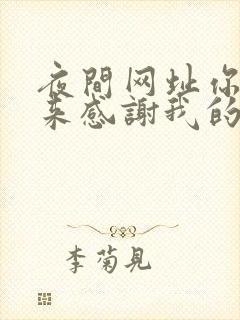 夜間网址你
来感謝我的
李菊見